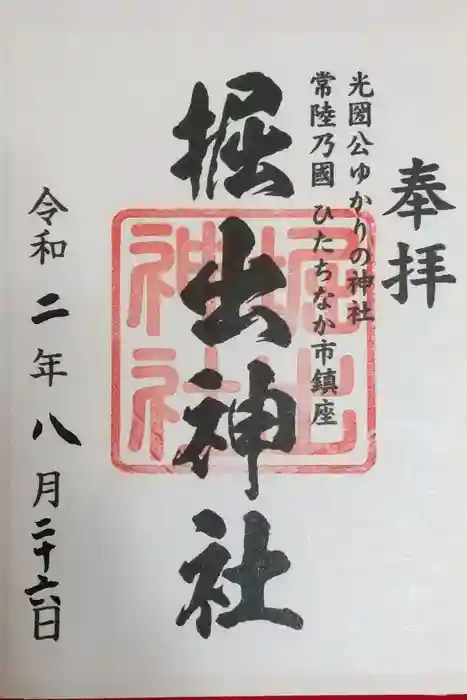 奉拝
光圀公ゆかりの神社
常陸乃國 ひたちなか市鎮座
掘出神社
掘出神社
令和二年八月二十六日